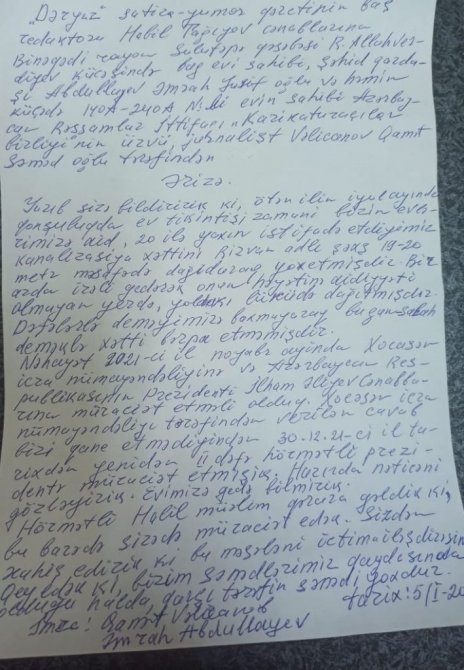 "Dəryaz" satira-yumor qəzetinin baş
redaktoru Həbil Tapiyev cənablarına
Binəqədi rayon Sülutəpə qəsəbəsi R. Allahver-
diyev küçəsində bağ evi sahibi, Şəhid qarda-
şı Abdullayev Əmrah Yusif oğlu və həmin
küçədə 140A-240A №-li evin sahibi Azərbay-
can Rəssamlar İttifaqı "Karikaturaçılar
birliyi"nin üzvü, jurnalist Vəlicanov Qamət
Səməd oğlu tərəfindən
Ərizə.
Yazıb sizə bildiririk ki, ötən ilin iyul ayında
qonşuluqda ev tikintisi zamanı bizim evlə-
rimizə aid, 20 ilə yaxın istifadə etdiyimiz
kanalizasiya xəttini Rizvan adlı şəxs 19-20
metr məsafədə dağıdaraq yox etmişdir. Bir
az da irəli gedərək onun həyətinə aidiyyəti
olmayan yerdə, yoldakı lükü də dağıtmışdır.
Dəfələrlə deməyimizə baxmayaraq bu gün-sabah
deməklə xətti bərpa etməmişdir.
Nəhayət 2021-ci il noyabr ayında Xocəsən
icra nümayəndəliyinə və Azərbaycan Res-
publikasının Prezidenti İlham Əliyev cənabla-
rına müraciət etməli olduq. Xocəsən icra
nümayəndəliyi tərəfindən verilən cavab
bizi qane etmədiyindən 30.12.21-ci il ta-
rixdən yenidən II dəfə hörmətli prezi-
dentə müraciət etmişik. Hazırda nəticəni
gözləyirik. Evimizə gedə bilmirik.
Hörmətli Həbil müəllim qərara gəldik ki,
bu barədə sizə də müraciət edək. Sizdən
xahiş edirik ki, bu məsələni ictimailəşdirəsiniz.
Qeyd edək ki, bizim sənədlərimiz qaydasında
olduğu halda, qarşı tərəfin sənədi yoxdur.
İmza: Qamət Vəlicanov tarix: 5/I-20
Əmrah Abdullayev